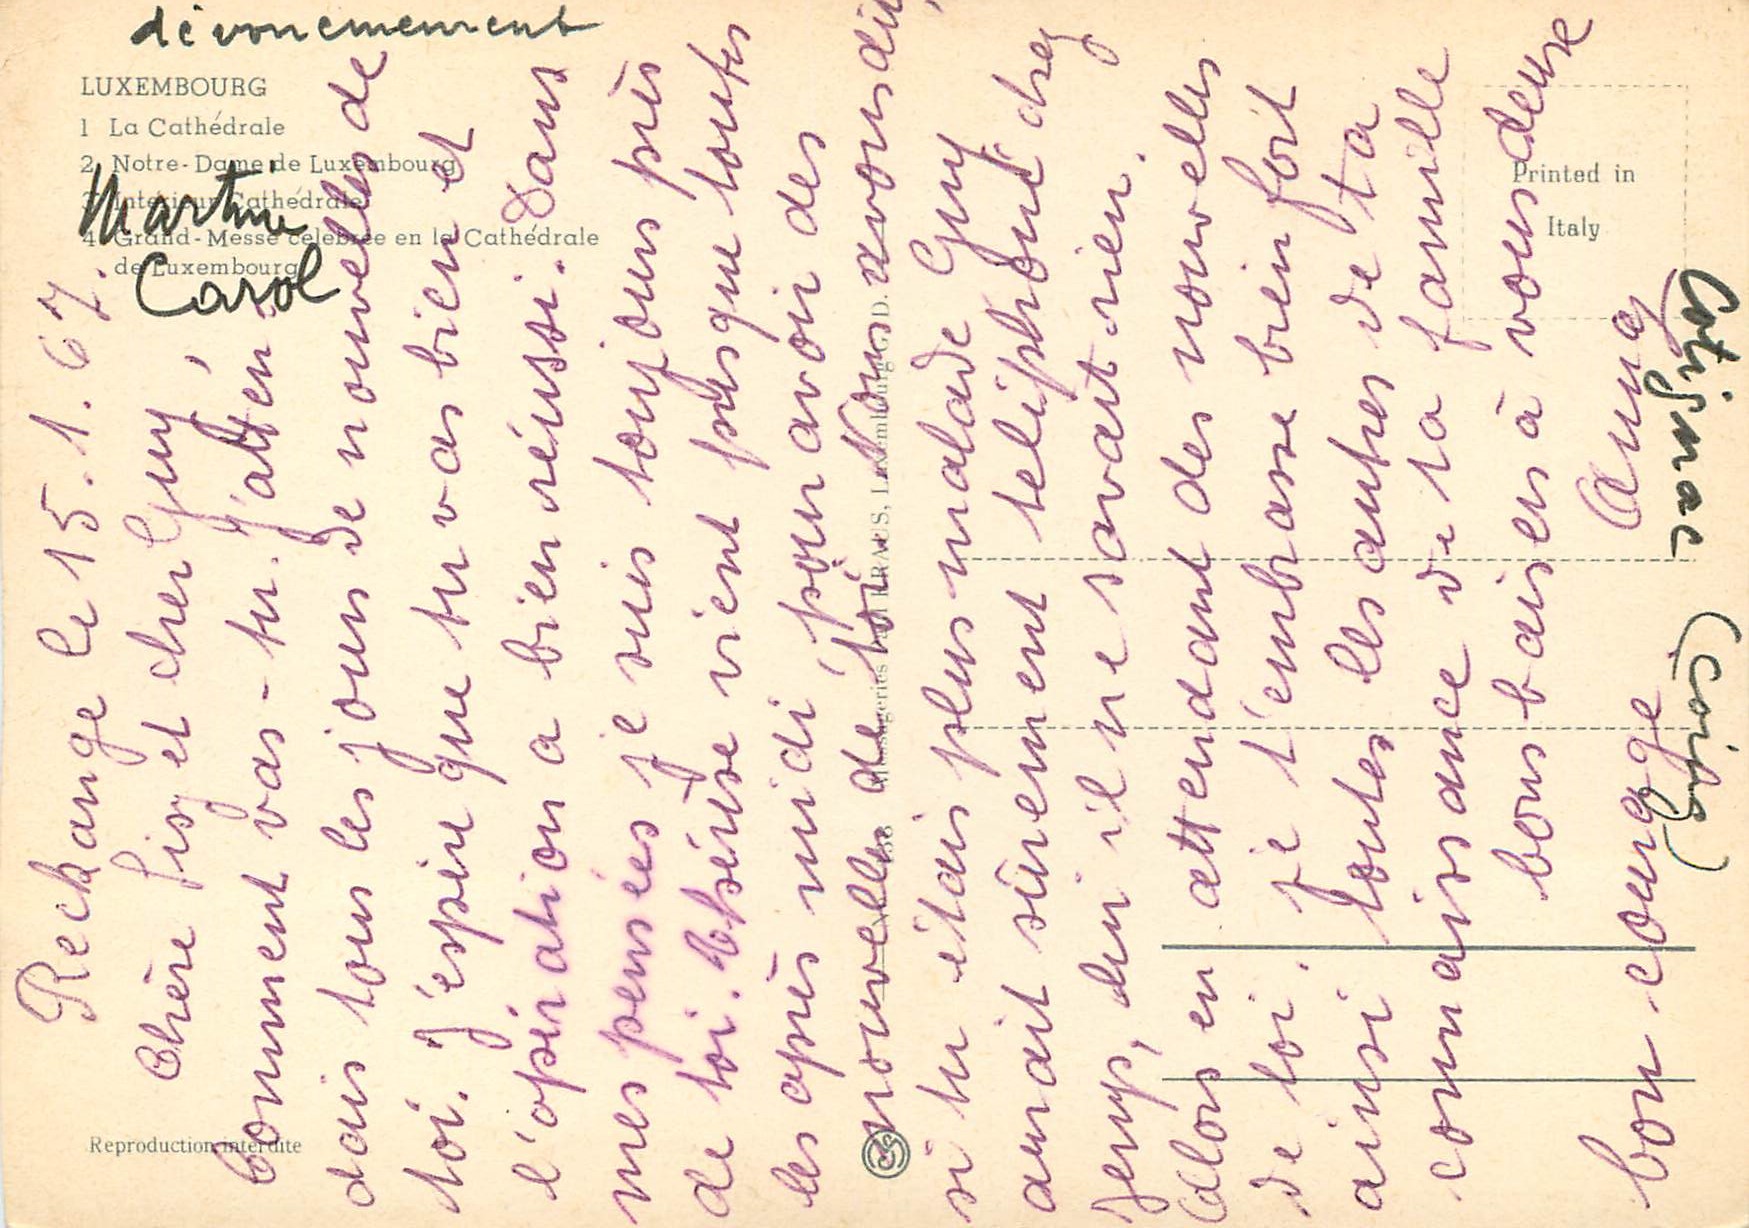 dévouemement
LUXEMBOURG
1 La Cathédrale
2 Notre-Dame de Luxembourg
3 Intérieur Cathédrale
4 Grand-Messe célébrée en la Cathédrale
de Luxembourg
Martine
Carol
Printed in
Italy
Reproduction interdite
Messageries Paul KRAUS, Luxembourg
Reckange le 15.1.67.
Chère fis et cher Guy,
Comment vas-tu. J'atten
dais tous les jours de nouvelles de
toi. J'espère que tu vas bien et
l'opération a bien réussi. Dans
mes pensées je suis toujours près
de toi. Thérèse vient presque toutes
les après midi pour avoir des
nouvelles de toi. Nous avons dit,
si tu étais plus malade Guy
aurait sûrement téléphoné chez
Jemp, lui il ne savait rien.
Alors en attendant des nouvelles
de toi. je t'embrasse bien fort
ainsi toutes les autres de ta
connaissance de la famille
bons baisers à vous deux
bon courage
Cotignac